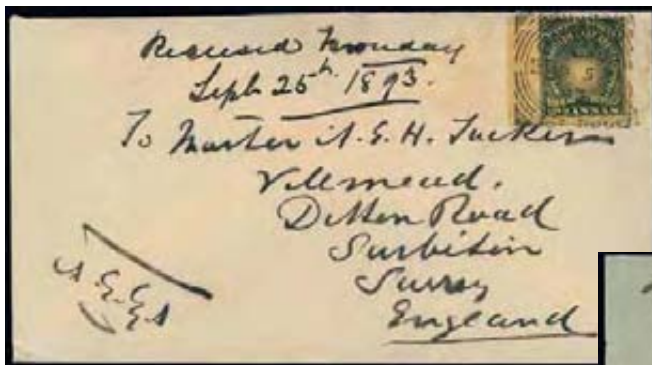 Received Monday
Sept 25th 1893.
To Master A. G. H. Tucker
Ditton Road
Surbiton
Surrey
England
5
ANNAS